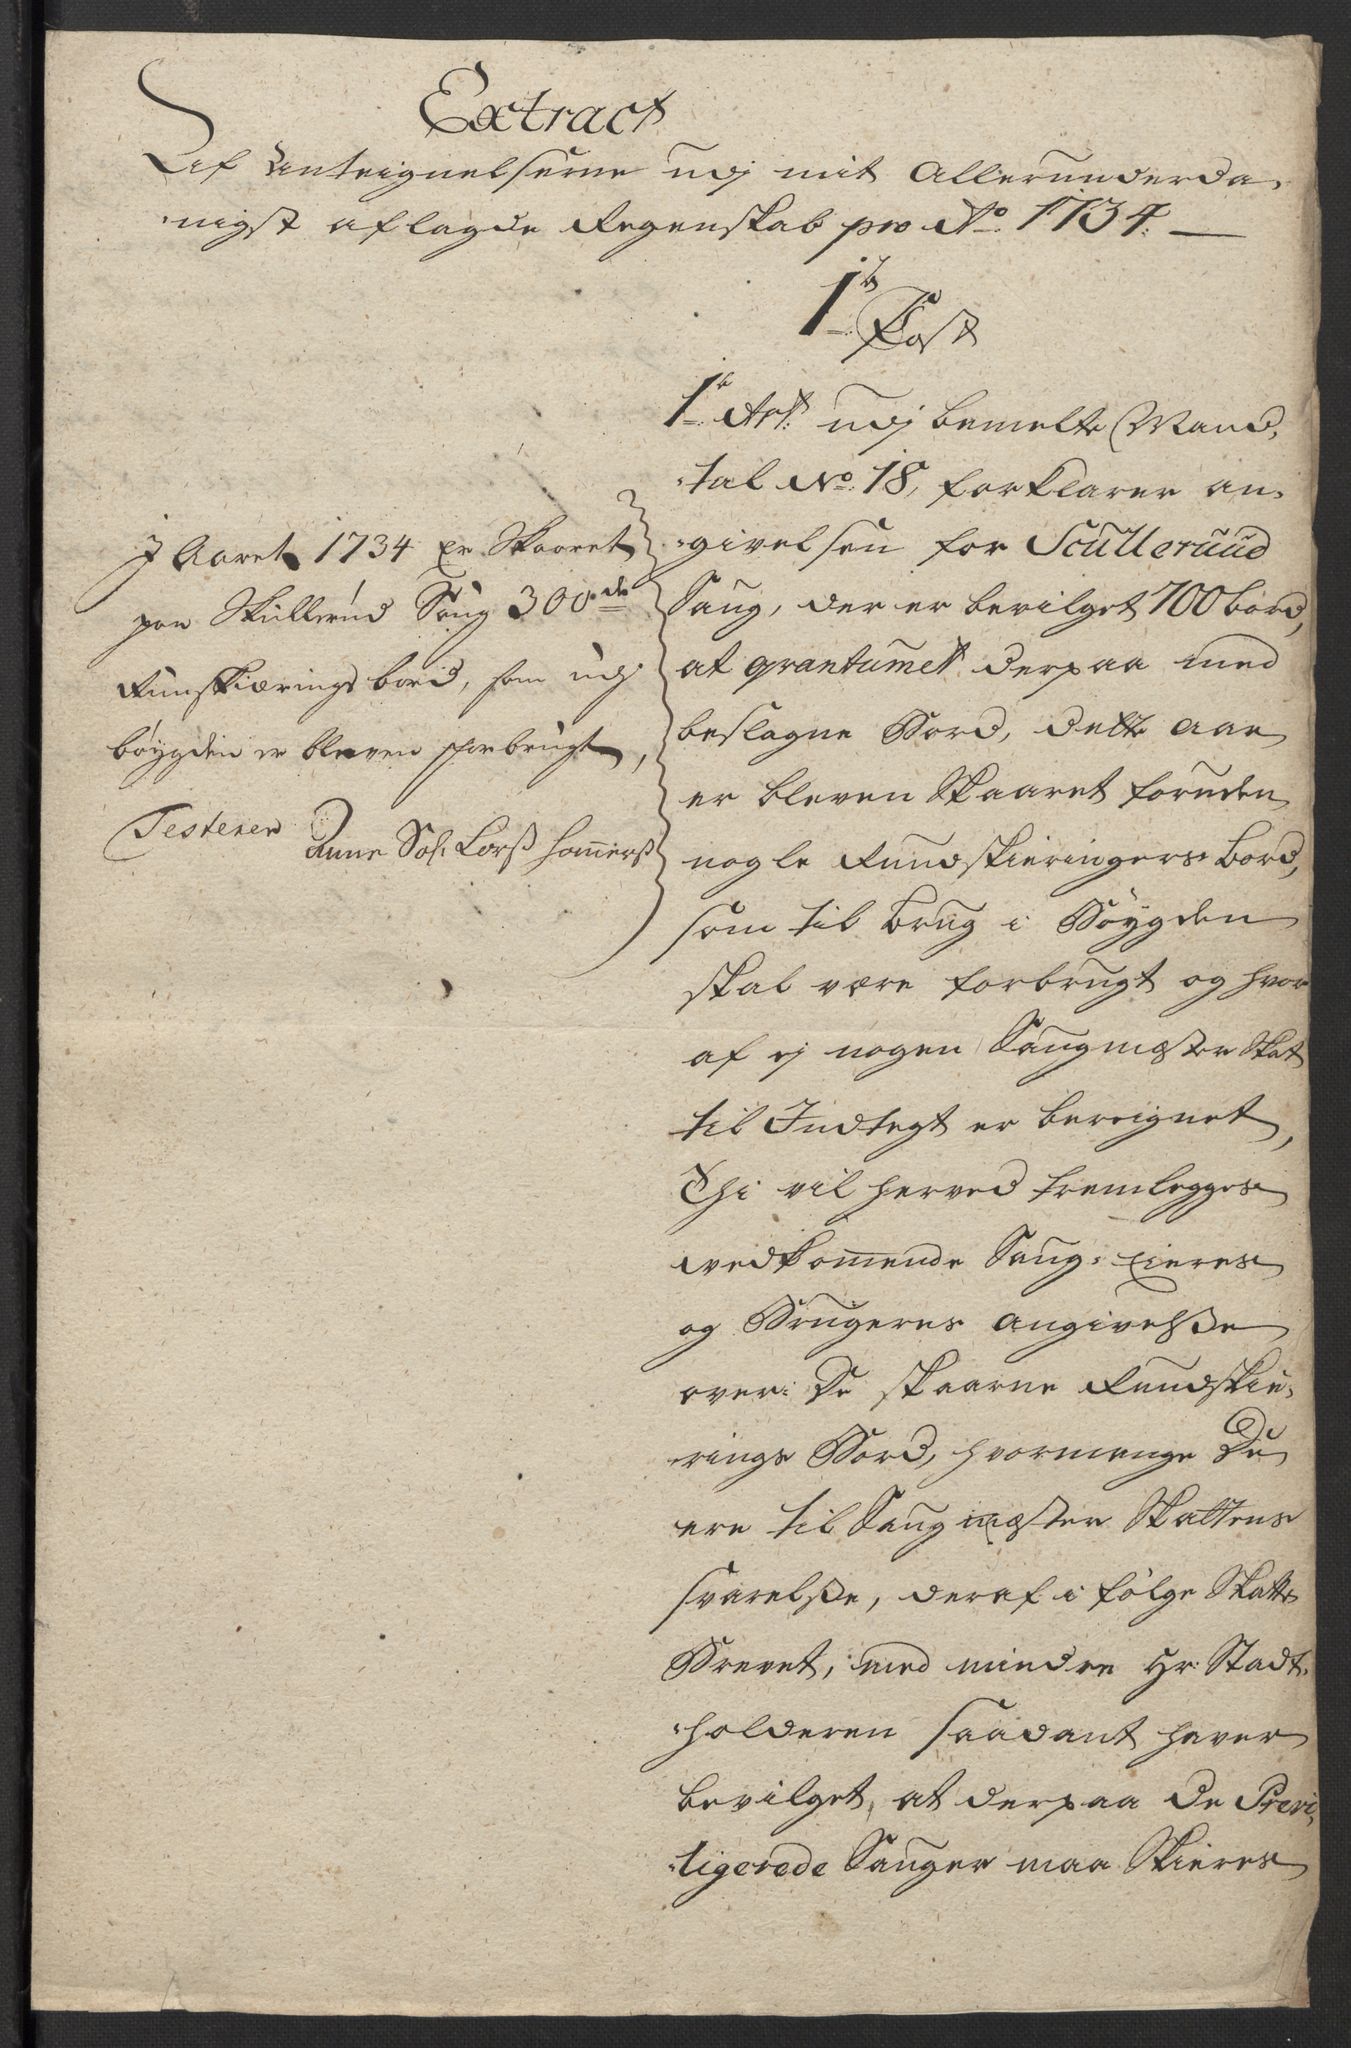 Extract
Af Anteignelserne udj mit Allerunderda-
nigst aflagde Regenskab pro Ao. 1734.
1te Post
1te Art: udj bemelte Mand-
tal No. 18, forklarer an-
givelsen for Sculleruud
Saug, der er bevilget 700 bord,
at qvantumet derpaa med
beslagne Bord, dette aar
er bleven skaaret foruden
nogle Rundskieringers Bord,
som til brug i Bøygden
skal være forbrugt og hvor
af ej nogen Saugmæster Skat
til Indtegt er bereignet,
Thi vil herved fremlegges
vedkomende Saug-Eieres
og Brugeres angivelsse
over: De skaarne Rundskie-
rings Bord, hvormange De
ere til Saugmæster Skattens
svarelsse, deraf i følge Skatte
Brevet, med mindre Hr: Stadt-
holderen saadant haver
bevilget, at derpaa De Previ-
ligerede Sauger maa skieres
J Aaret 1734 er Skaaret
paa Skullerud Saug 300de
Runskiærings bord, som udj
bøygden er bleven forbrugt,
Testerer
Anne Sal. Lorß Hamerß